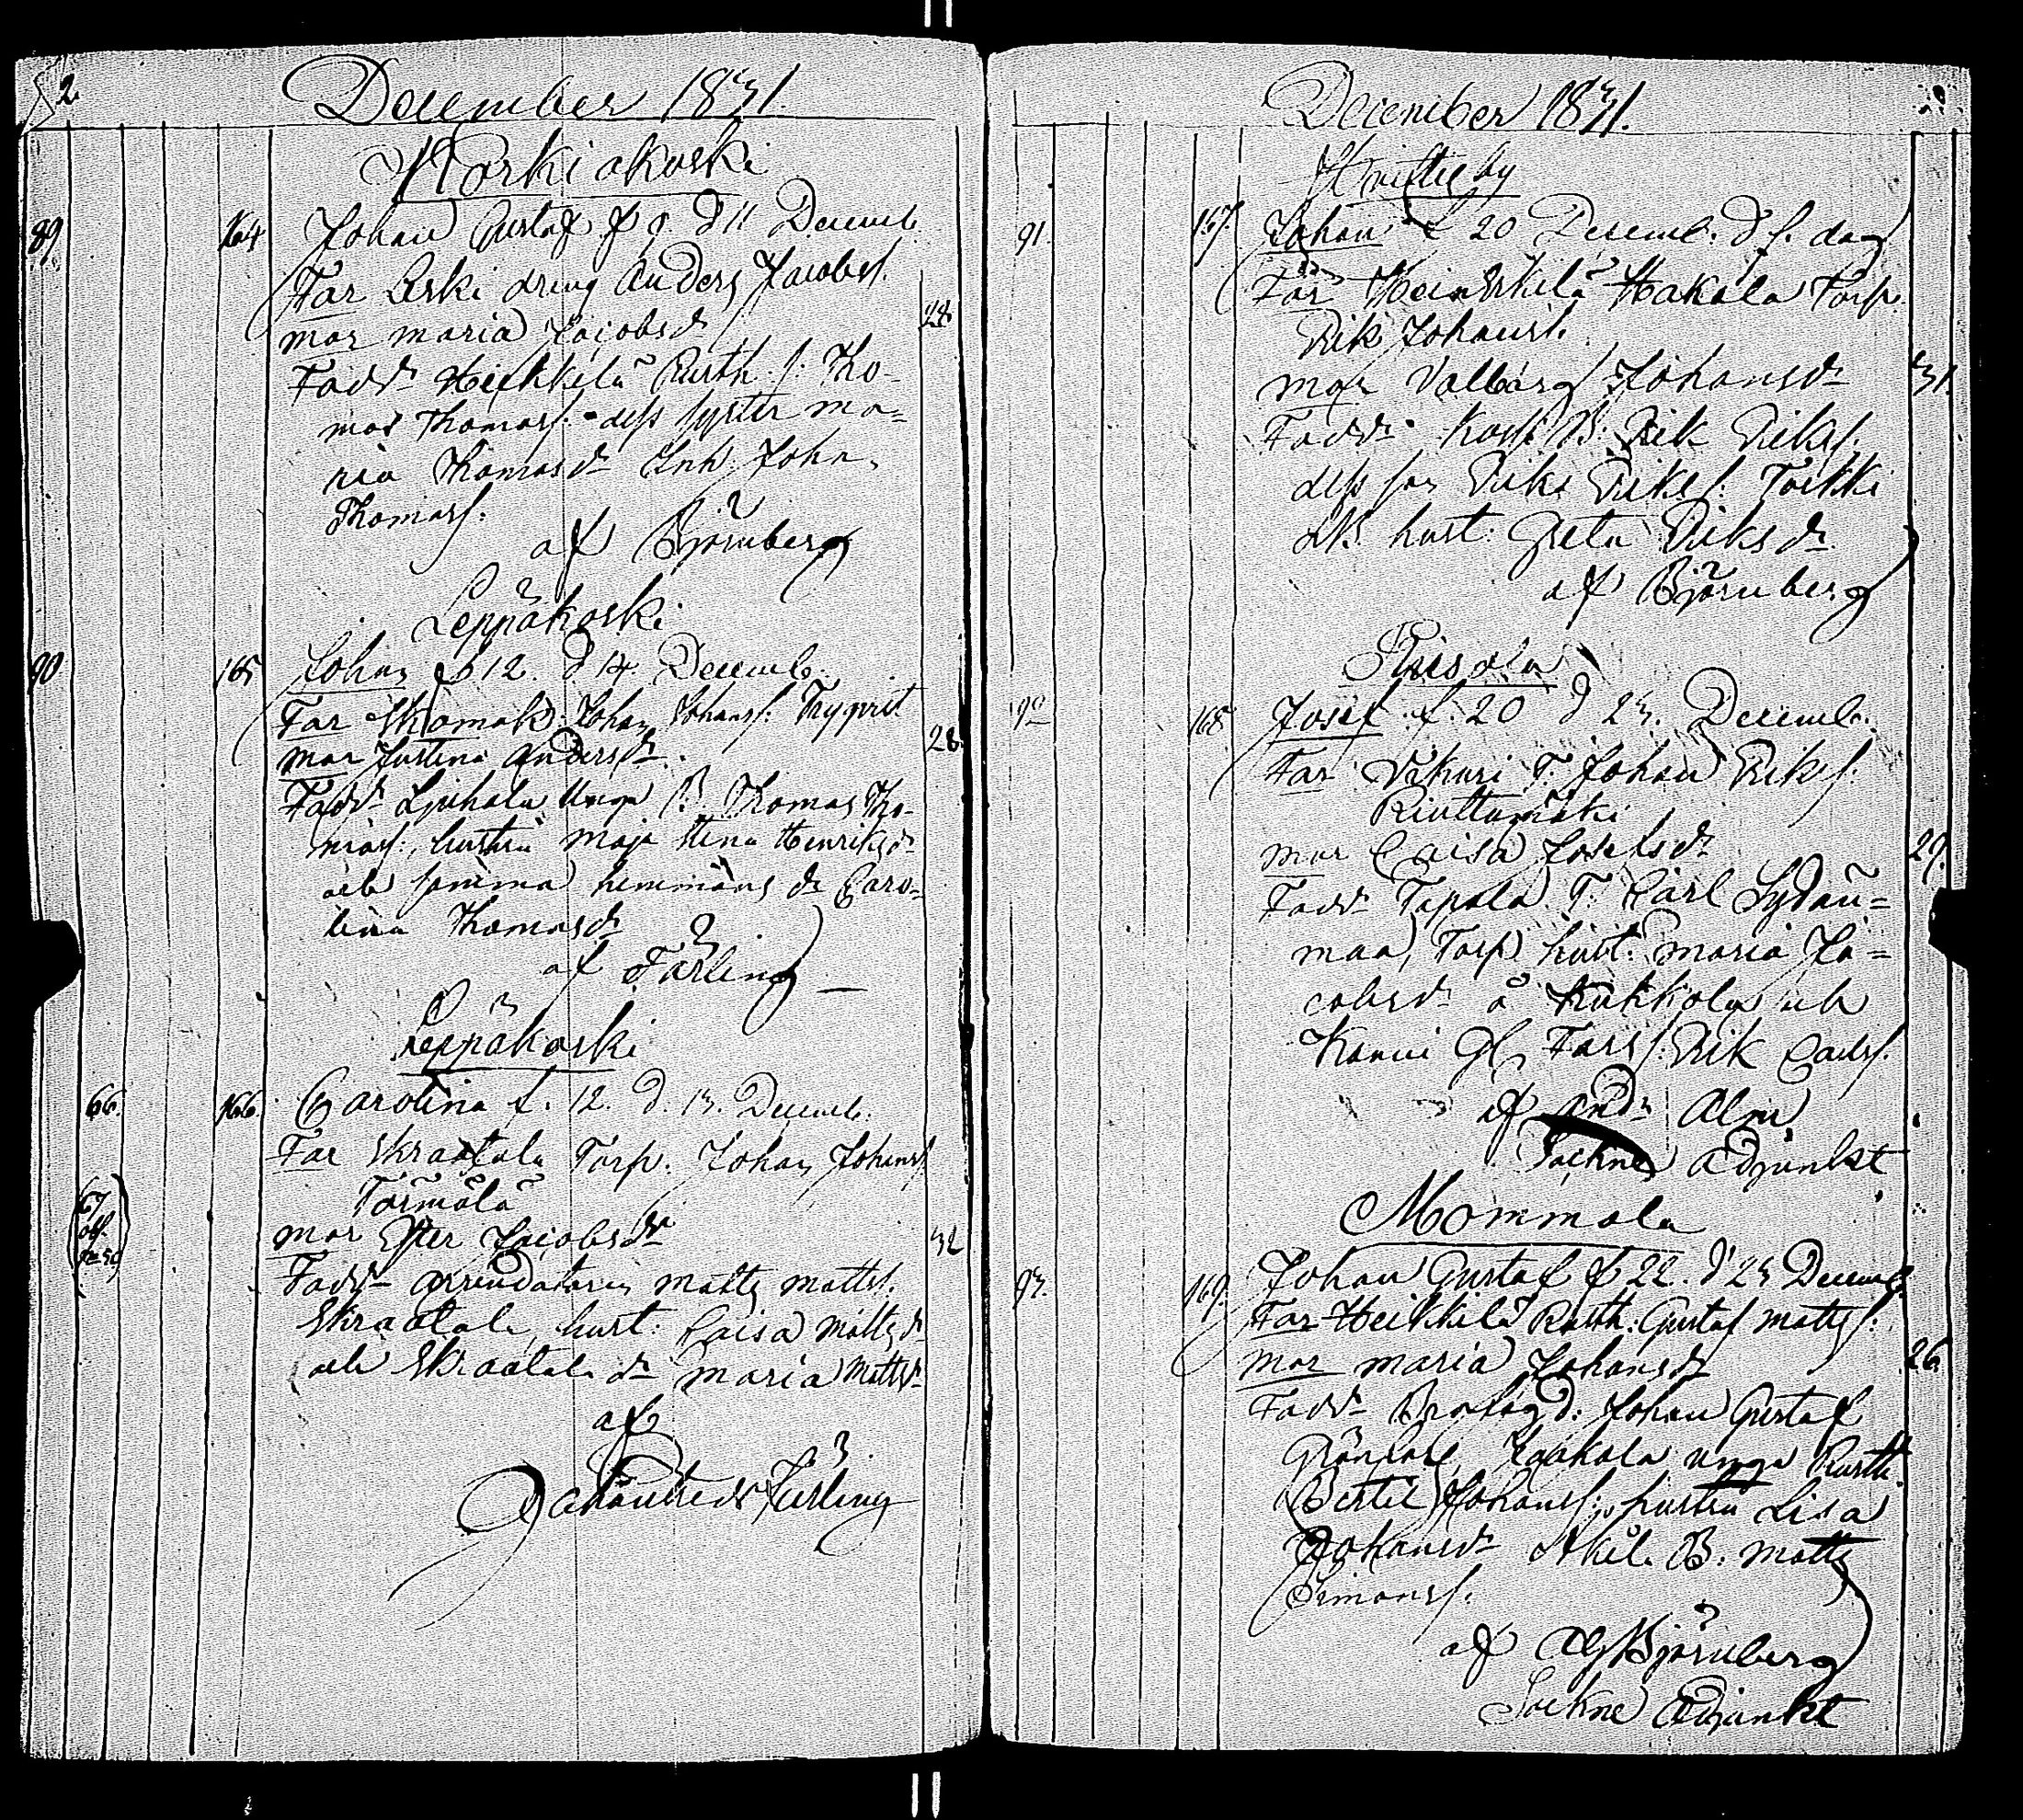 52.
December 1831.
Korkiakoski
89 164 Johan Gustaf f 9 d 11 Decemb.
Far Leski dräng Anders Jacobss.
mor Maria Jacobsdr 28.
Faddr Heikkilä Rusth. s. Tho-
mas Thomass. dess syster Ma-
ria Thomasdr Inh. Johan
Thomass.
af Björnberg
Leppäkoski
90 165 Johan f 12. d 14. Decemb.
Far Skomak. Johan Johanss.
mor Justina Andersdr. 28.
Faddr unga B. Thomas Tho-
mass:, hustru Maja Stina Henriksdr
och samma hemmans dr Caro-
lina Thomasdr
af Färling
Leppäkoski
66. 166. Carolina f. 12. d. 13. Decemb.
Far Skraatala Torp. Johan Johanss.
Törmälä
mor Ester Jacobsdr 32
Faddr Arrendatorn Matts Mattss.
Skraatala, hust: Caisa Mattsdr
och Skraatala dr Maria Mattsdr
af
Färling
December 1831.
Hvittis by
91. 167. Johan f 20 Decemb. d s. dag
Far Heinikkilä Hakala Torp.
Erik Johanss.
mor Valborg Johansdr 31.
Faddr B. Erik Erikss.
dess son Erik Erikss: Torkki
B. hust: Greta Eriksdr
af Björnberg
Suisola
92 168 Josef f. 20 d 23. Decemb.
Far T. Johan Erikss.
Riuttamäki
mor Caisa Josefsdr 29.
Faddr Tapala T. Carl Sydän=
maa, Torp hust: Maria Ja=
cobsdr å Kukkola och
Erik Carlss.
af And: Alm
Sockne Adjunkt
Mommola
93. 169. Johan Gustaf f 22. d 23 Decemb.
Far Heikkilä Rusth: Gustaf Mattss:
mor Maria Johansdr 26.
Faddr Johan Gustaf
Grönfors, Jaakola unga Rusth.
Bertil Johanss:, hustru Lisa
Johansdr B: Matts
Simonss.
af Björnberg
Sockne Adjunkt